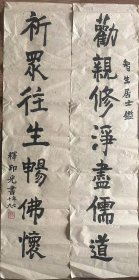 智生居士鑑
勸親修淨盡儒道
祈眾往生暢佛懷
釋印光書